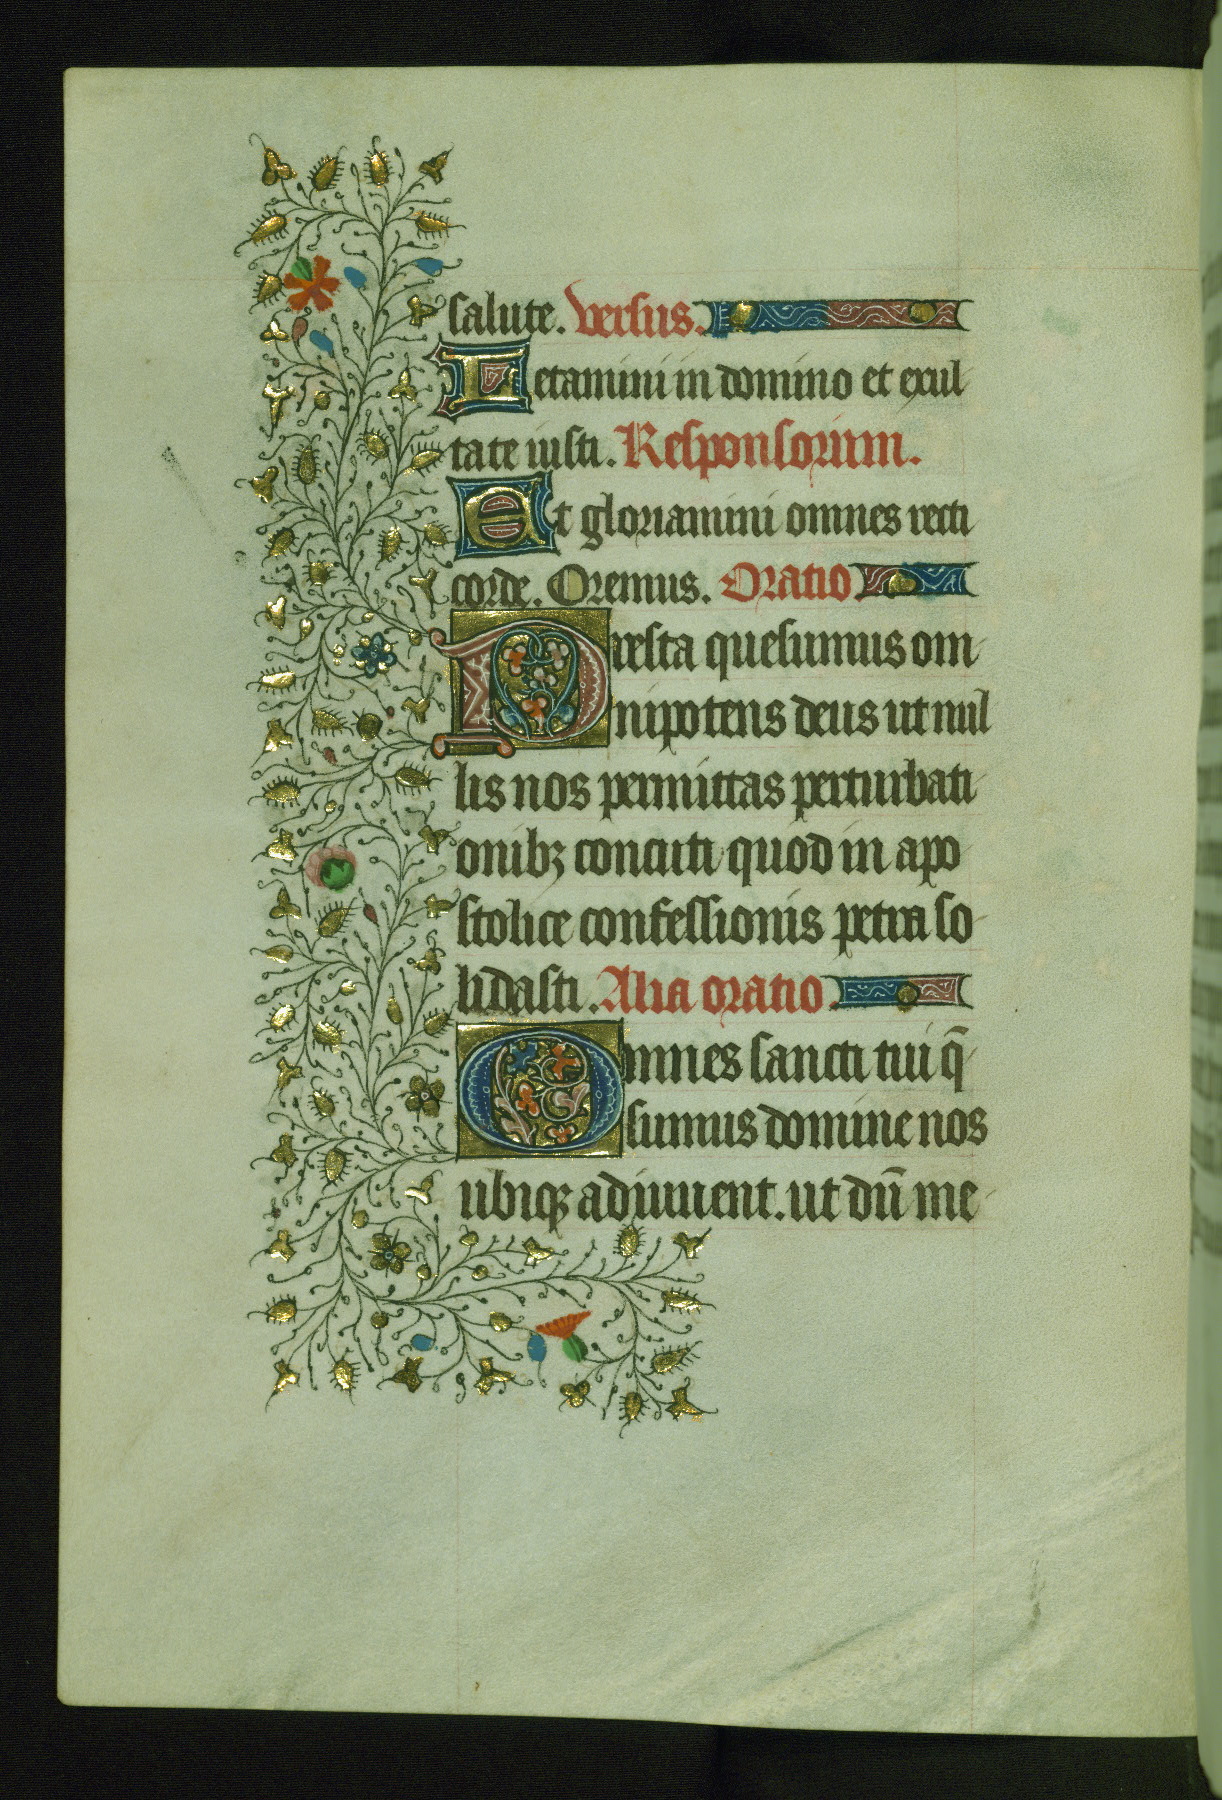 salute. Versus.
Letamini in domino et exul
tate iusti. Responsorium.
Et gloriamini omnes recti
corde. Oremus. Oratio.
Presta quesumus om
nipotens deus ut nul
lis nos permittas perturbati
onibꝫ concuti quod in apo
stolice confessionis petra so
lidasti. Alia oratio.
Omnes sancti tui q̄
sumus domine nos
ubiqꝫ adiuuent. ut dū me